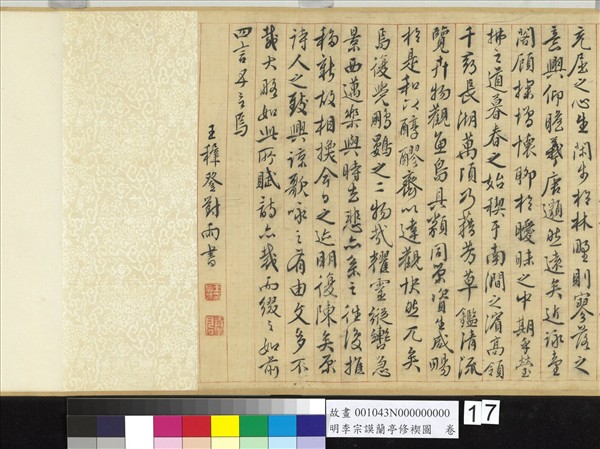 充屈之心生閑步於林野則寥落之
意興仰瞻羲唐邈然遠矣近詠臺
閣顧探增懷聊於曖昧之中期乎瑩
拂之道暮春之始禊于南澗之濱高領
千尋長湖萬頃乃藉芳草鑑清流
覽卉物觀魚鳥具類同榮資生咸暢
於是和以醇醪齊以達觀快然兀矣
焉復覺鵬鷃之二物哉耀靈縱轡急
景西邁樂與時去悲亦系之往復推
移新故相換今日之迹明復陳矣原
詩人之致興諒歌詠之有由文多不
載大略如此所賦詩亦裁而綴之如前
四言五言焉
王穉登對雨書
故畫 001043N000000000
明李宗謨蘭亭修禊圖 卷
17